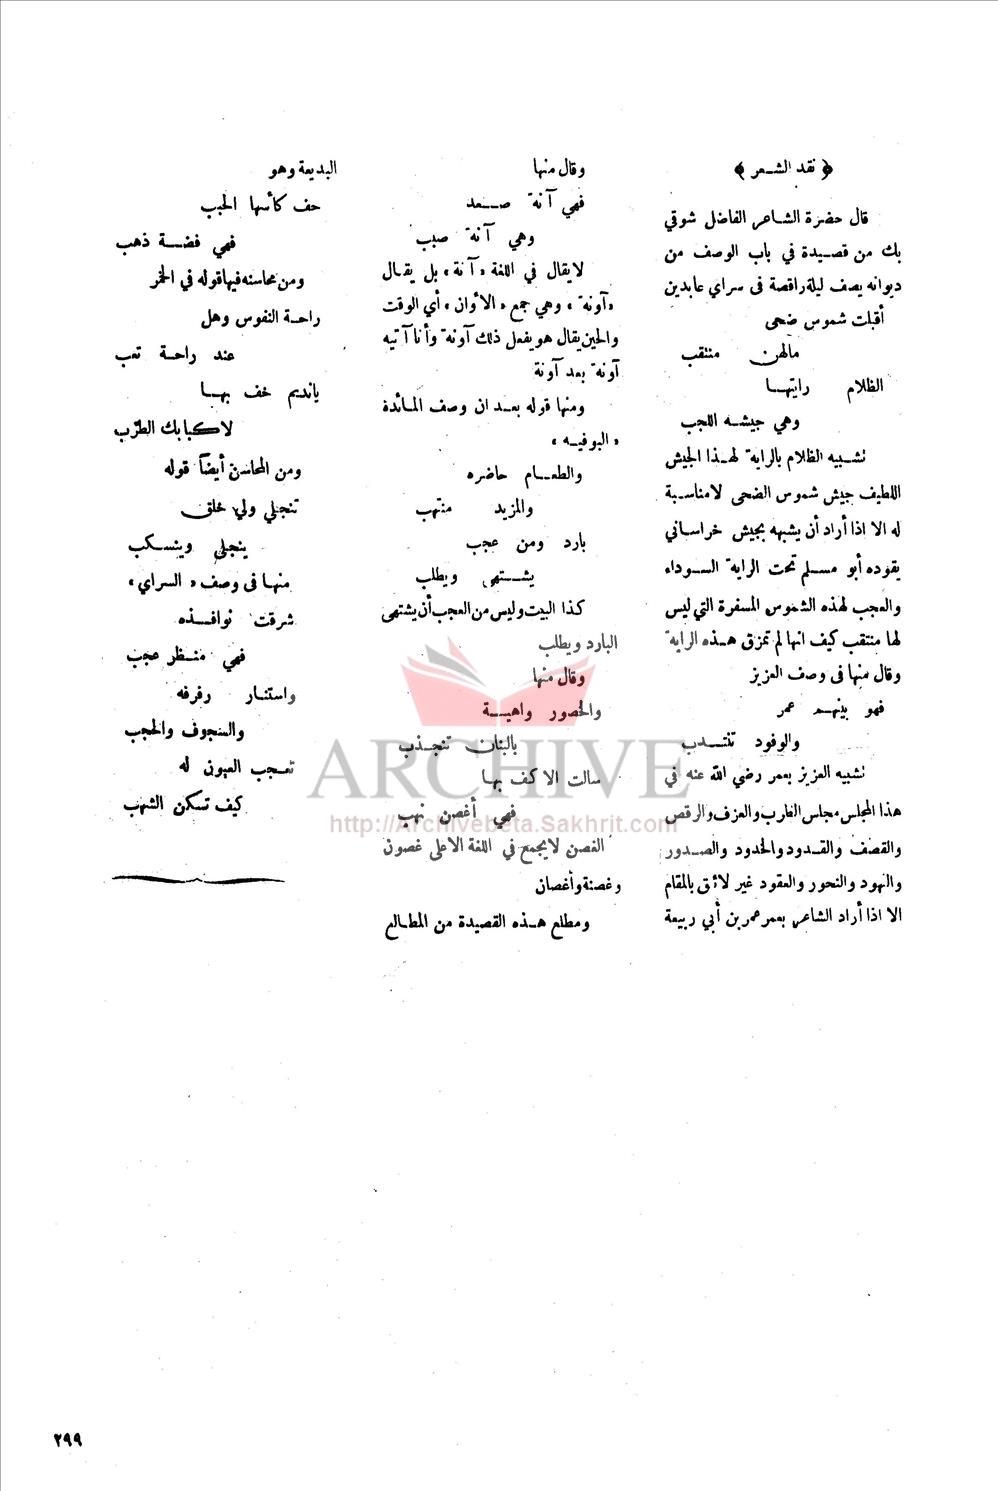 ﴿ نقد الشعر ﴾
قال حضرة الشاعر الفاضل شوقي
بك من قصيدة في باب الوصف من
ديوانه يصف ليلة راقصة فى سراي عابدين
أقبلت شموس ضحى
مالهن منتقب
الظلام رايتها
وهي جيشه اللجب
تشبيه الظلام بالراية لهذا الجيش
اللطيف جيش شموس الضحى لا مناسبة
له الا اذا أراد أن يشبهه بجيش خراساني
يقوده أبو مسلم تحت الراية السوداء
والعجب لهذه الشموس المسفرة التي ليس
لها منتقب كيف انها لم تمزق هذه الراية
وقال منها فى وصف العزيز
فهو بينهم عمر
والوفود تنتدب
تشبيه العزيز بعمر رضي الله عنه في
هذا المجلس مجلس الطرب والعزف والرقص
والقصف والقدود والخدود والصدور
والنهود والنحور والعقود غير لائق بالمقام
الا اذا أراد الشاعر بعمر عمر بن أبي ربيعة
وقال منها
فهي آنة صعد
وهي آنة صبب
لايقال في اللغة «آنة» بل يقال
«آونة» وهي جمع «الأوان» أي الوقت
والحين يقال هو يفعل ذلك آونة وأنا آتيه
آونة بعد آونة
ومنها قوله بعد ان وصف المائدة
«البوفيه»
والطعام حاضره
والمزيد منتهب
بارد ومن عجب
يشتهى ويطلب
كذا البيت وليس من العجب أن يشتهى
البارد ويطلب
وقال منها
والخصور واهية
بالبنان تنجذب
سالت الاكف بها
فهي أغصن نهب
الغصن لايجمع في اللغة الاعلى غصون
وغصنة وأغصان
ومطلع هذه القصيدة من المطالع
البديعة وهو
حف كأسها الحبب
فهي فضة ذهب
ومن محاسنه فيها قوله في الخمر
راحة النفوس وهل
عند راحة تعب
يانديم خف بها
لاكبا بك الطرب
ومن المحاسن أيضاً قوله
تنجلي ولي خلق
ينجلي وينسكب
منها فى وصف «السراي»
شرقت نوافذه
فهي منظر عجب
واستنار رفرفه
والسجوف والحجب
تعجب العيون له
كيف تسكن الشهب
ARCHIVE
http://Archivebeta.Sakhrit.com
٢٩٩